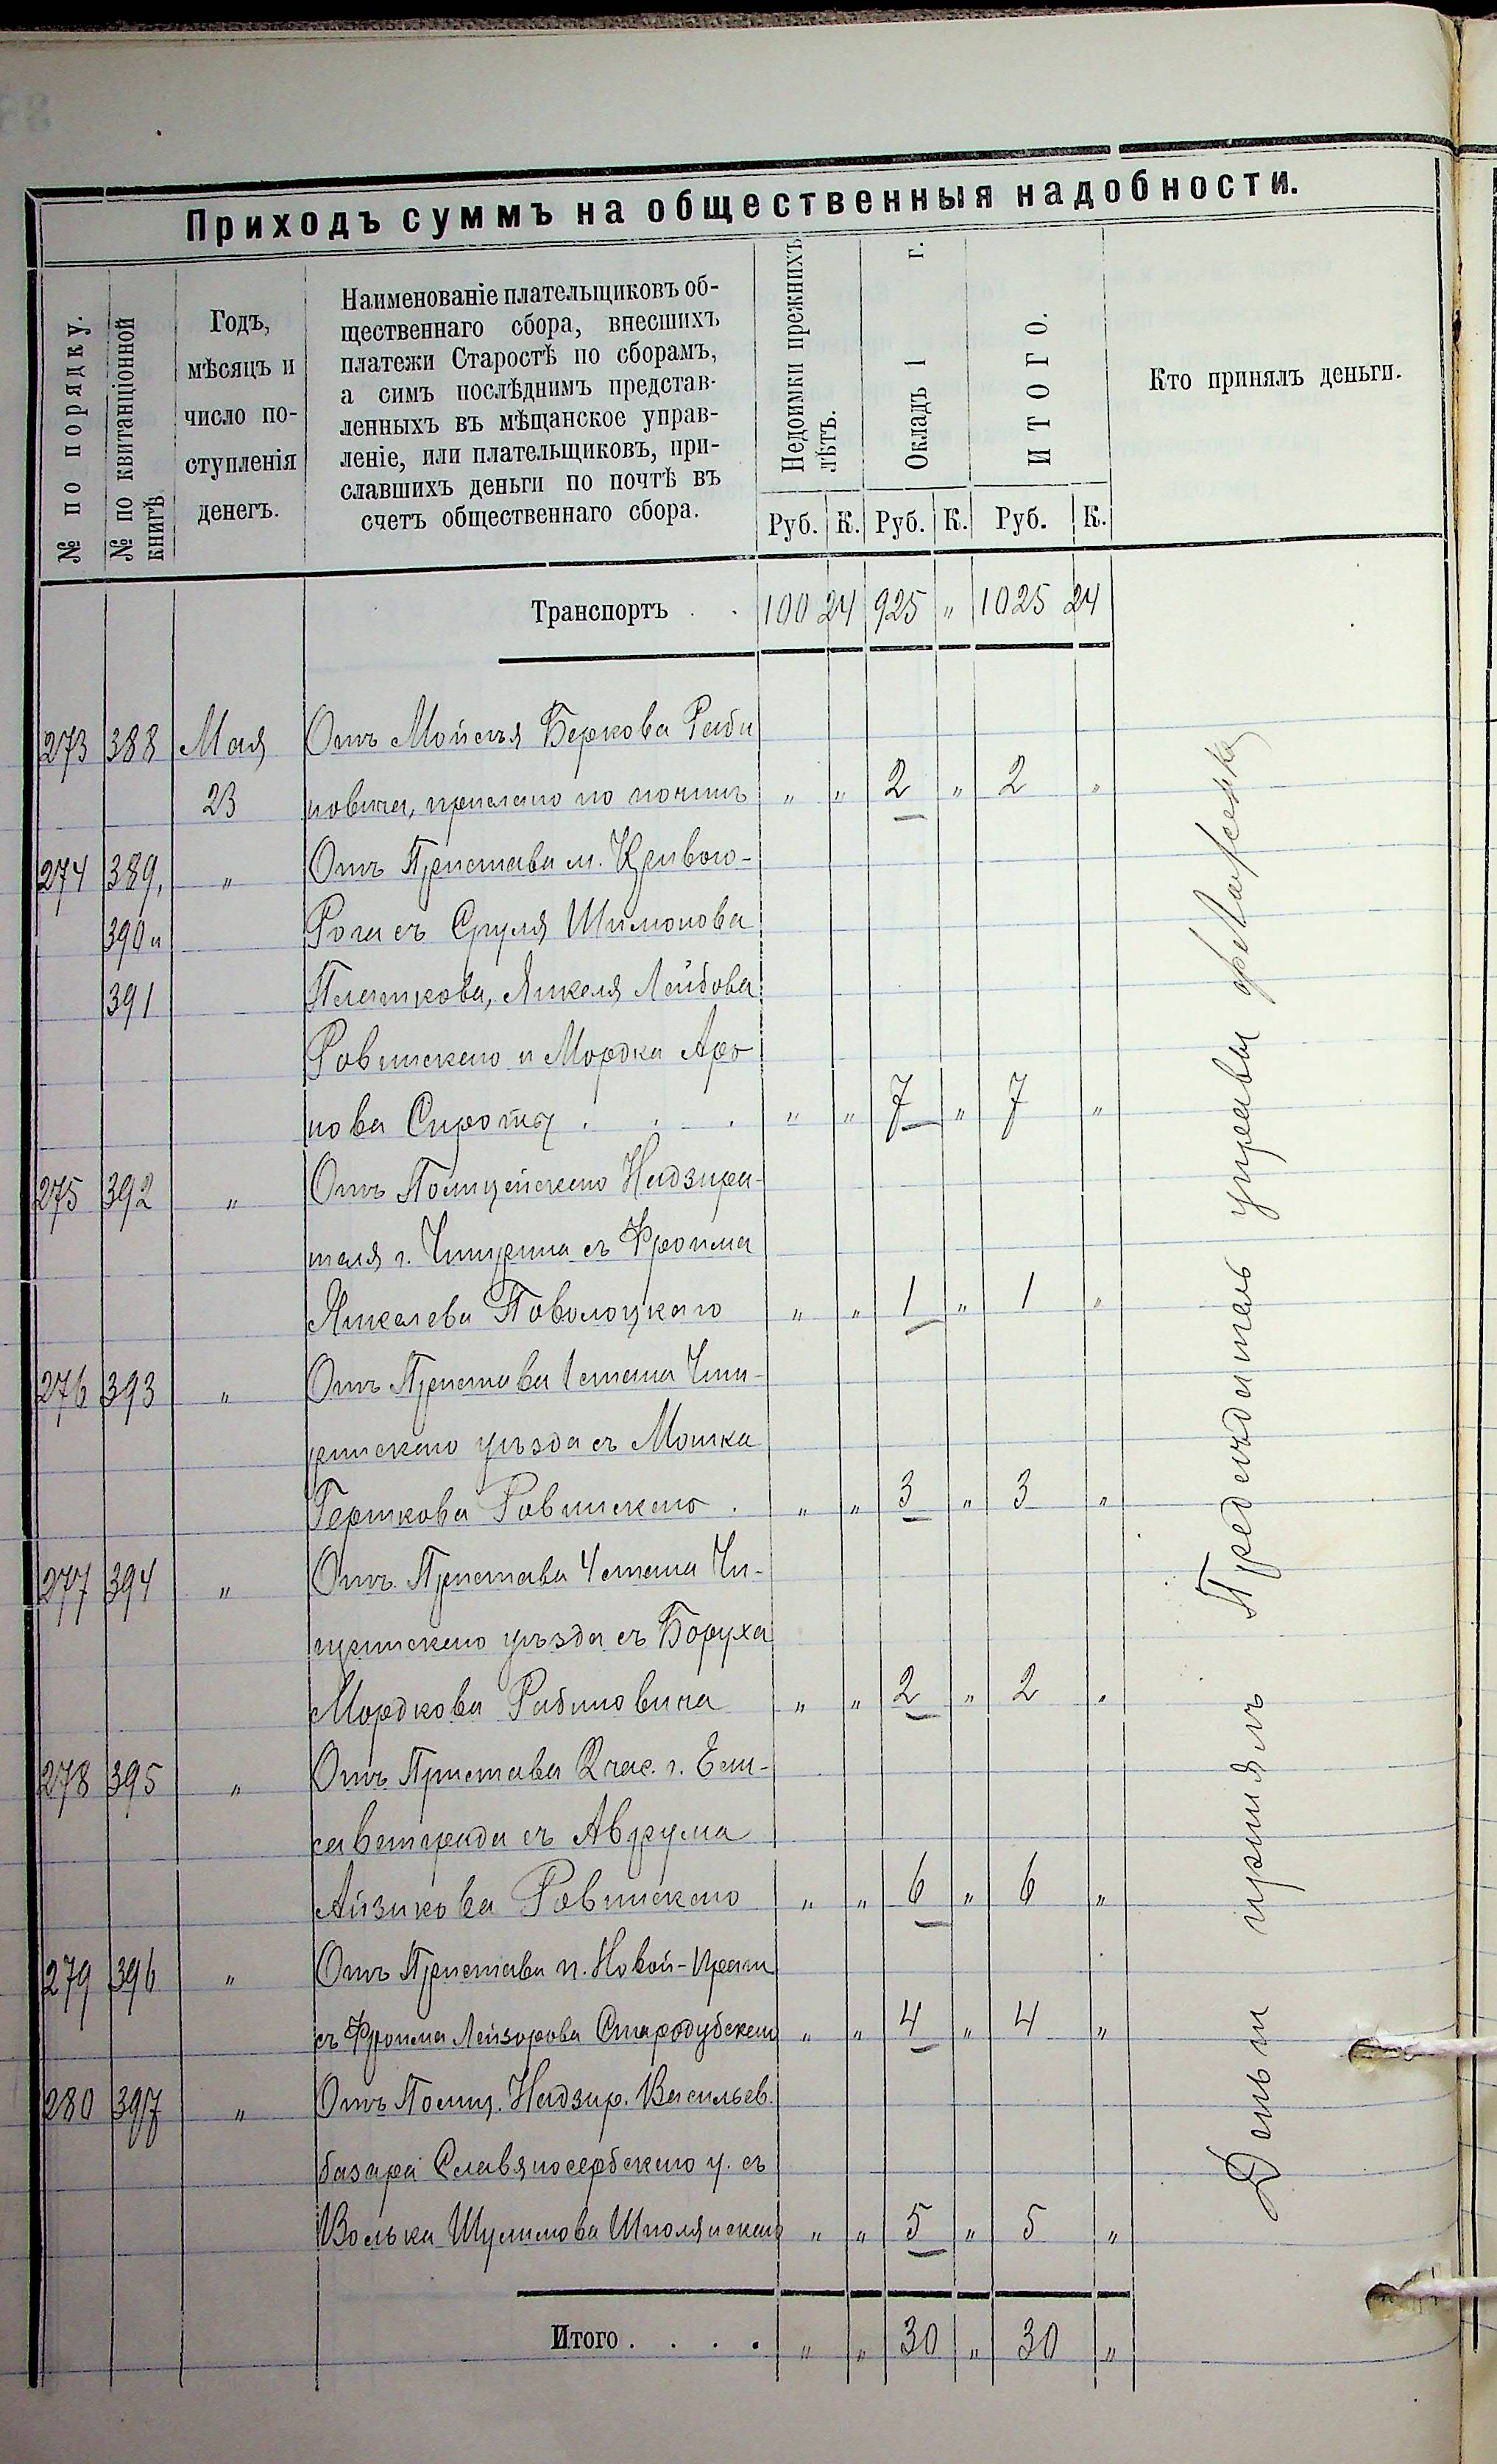 Приходъ суммъ на общественныя надобности.
№ по порядку.
№ по квитанціонной книгѣ
Годъ,
мѣсяцъ и
число по-
ступленія
денегъ.
Наименованіе плательщиковъ об-
щественнаго сбора, внесшихъ
платежи Старостѣ по сборамъ,
а симъ послѣднимъ представ-
ленныхъ въ мѣщанское управ-
леніе, или плательщиковъ, при-
славшихъ деньги по почтѣ въ
счетъ общественнаго сбора.
Недоимки прежнихъ
лѣтъ.
Окладъ 1 г.
ИТОГО.
Кто принялъ деньги.
Руб. К. Руб. К. Руб. К.
Транспортъ . . 100 24 925 " 1025 24
273 388 Мая Отъ Мойсѣя Беркова Раби
23 новича, прислано по почтѣ " " 2 " 2 "
274 389, " Отъ Пристава м. Кривого-
390 и Рога съ Сруля Шимонова
391 Платкова, Янкеля Лейбова
Ровинскаго и Мордка Аро
нова Сироты . . . " " 7 " 7 "
275 392 " Отъ Полицейскаго Надзира-
теля г. Чигирина съ Фроима
Янкелева Поволоцкаго " " 1 " 1 "
276 393 " Отъ Пристава 1 стана Чиги-
ринскаго уѣзда съ Мошка
Гершкова Ровинскаго . " " 3 " 3 "
277 394 " Отъ Пристава 4 стана Чи-
гиринскаго уѣзда съ Боруха
Мордкова Рабиновича " " 2 " 2 "
278 395 " Отъ Пристава 2 час. г. Ели-
саветграда съ Аврума
Айзикова Ровинскаго " " 6 " 6 "
279 396 " Отъ Пристава п. Новой-Праги
съ Фроима Лейзорова Стародубскаго " " 4 " 4 "
280 397 " Отъ Полиц. Надзир. Васильев.
базара Славяносербскаго у. съ
Волька Шулимова Шполянскаго " " 5 " 5 "
Итого . . . . " " 30 " 30 "
Деньги принялъ Предсѣдатель управы